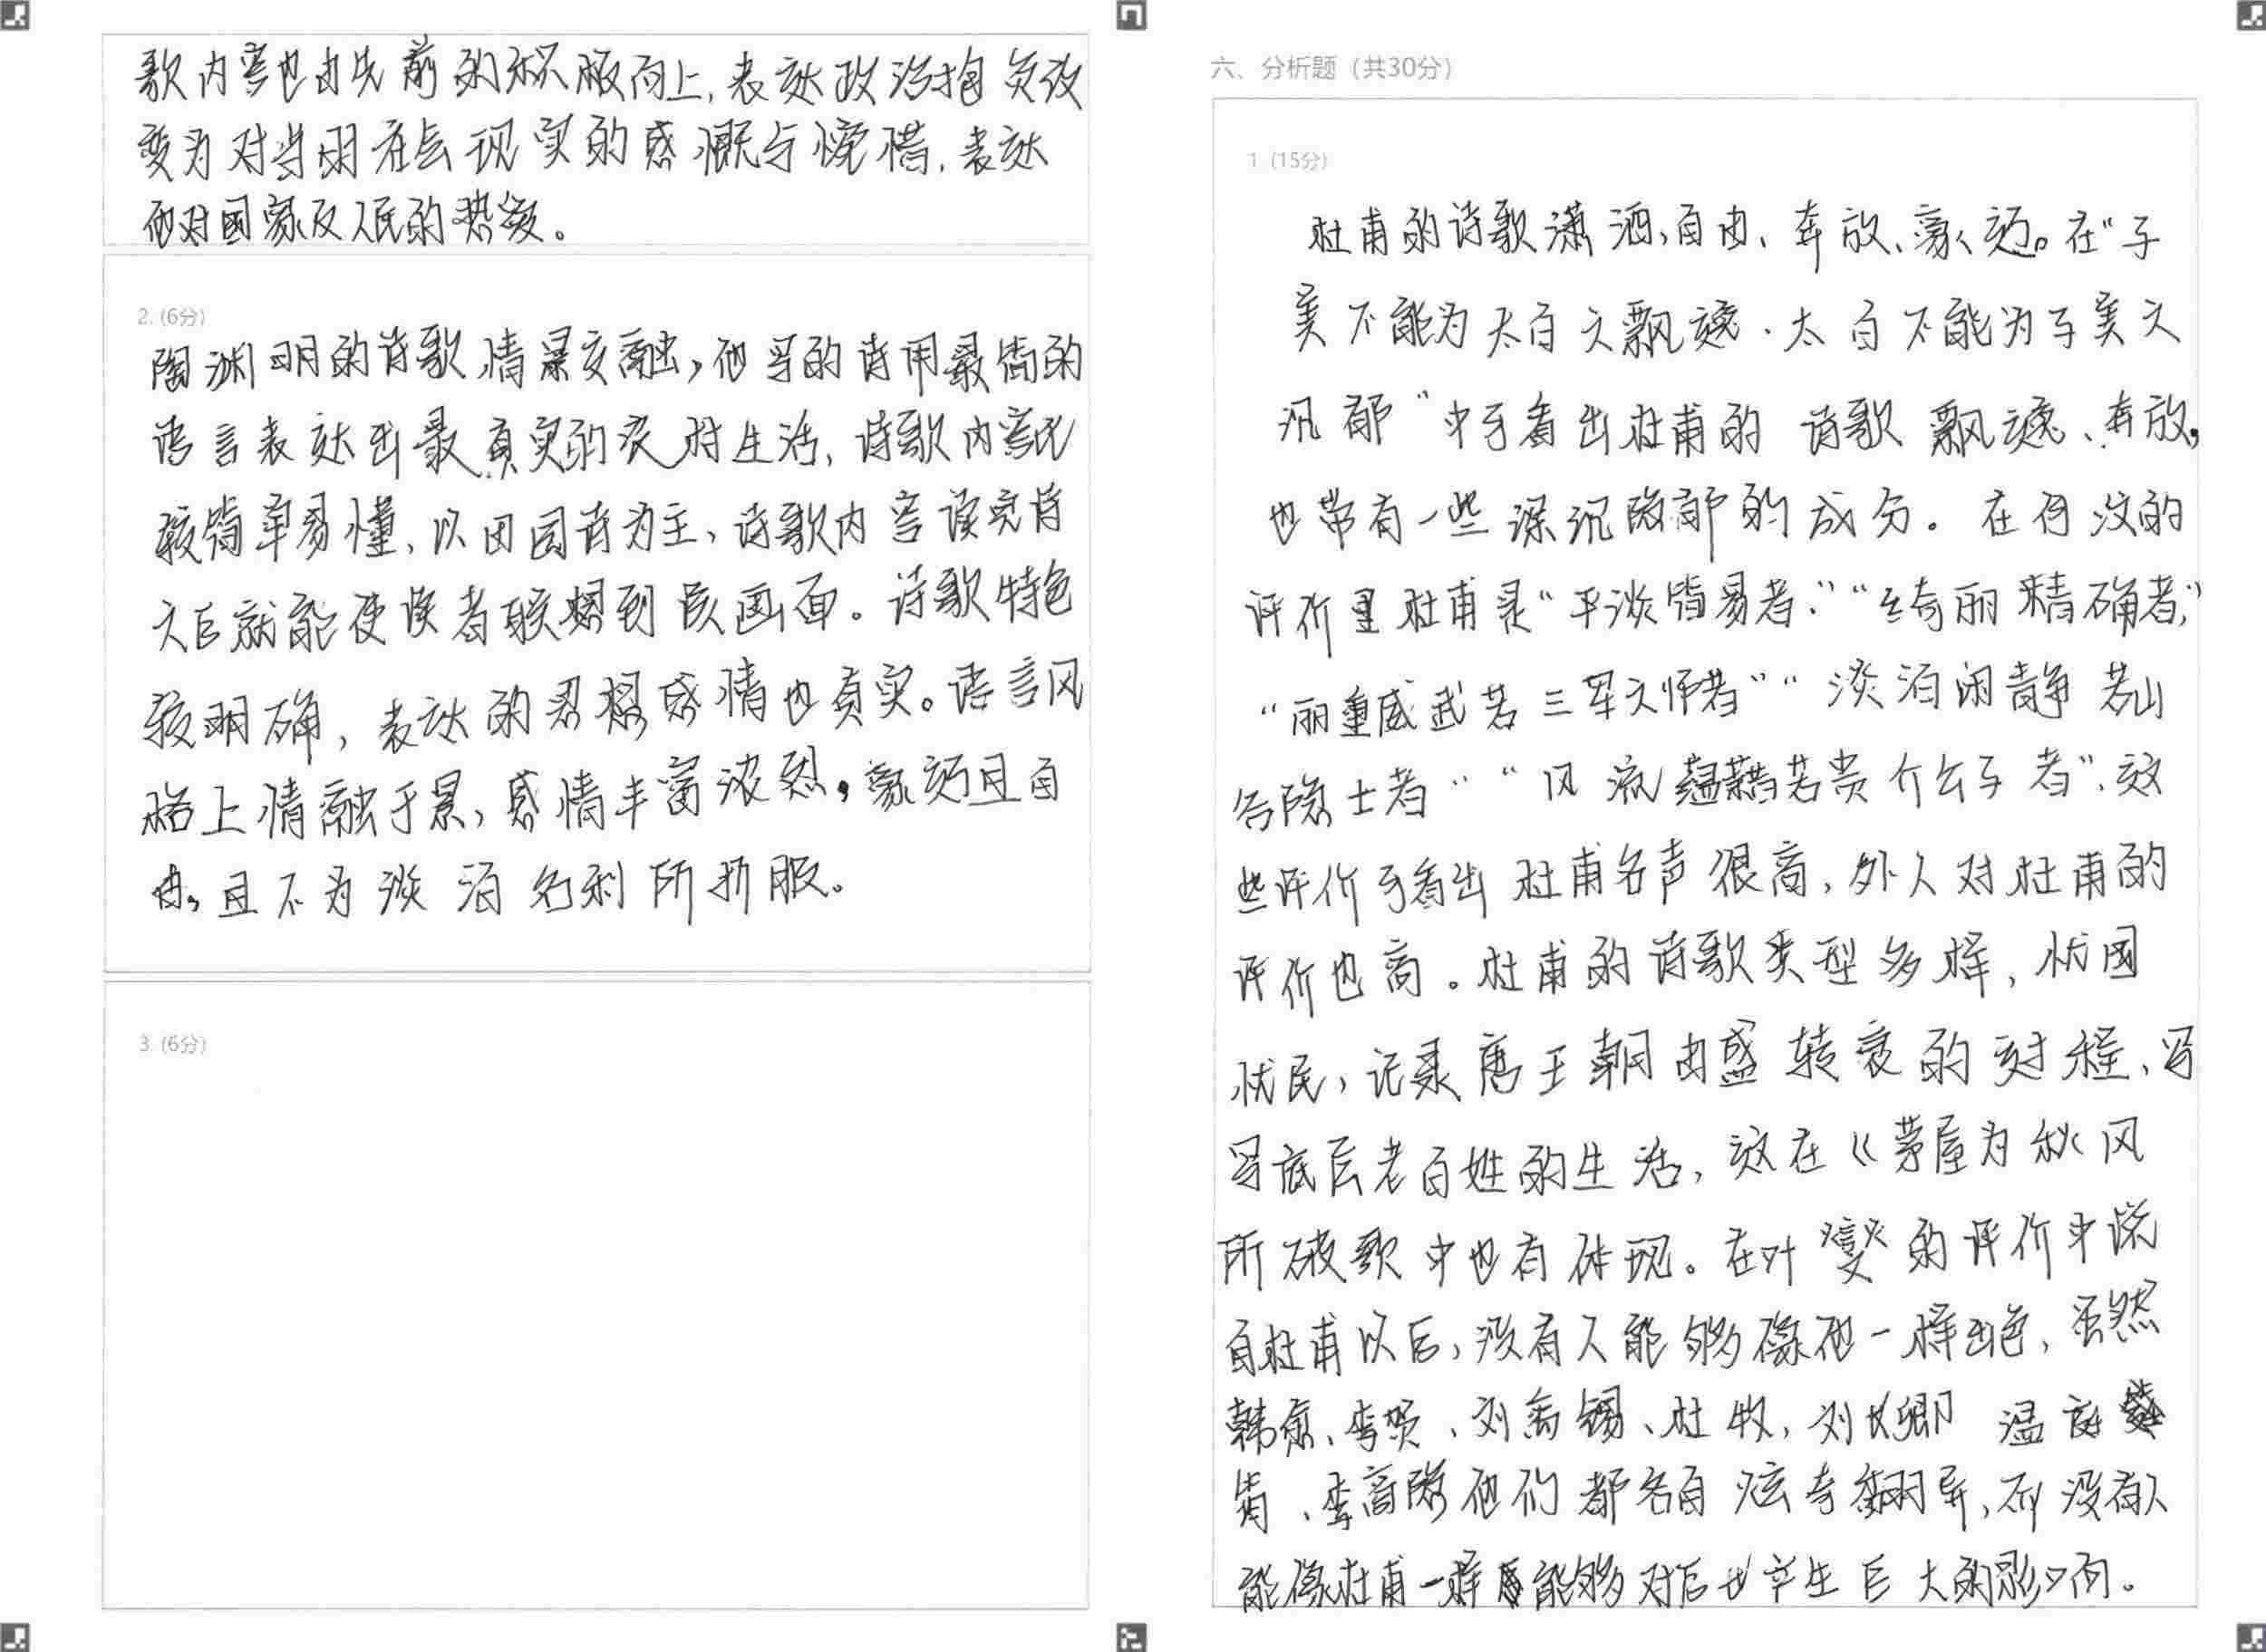 歌内容也由先前的积极向上,表达政治抱负改
变为对当朝社会现实的感慨与惋惜,表达
他对国家及人民的热爱。
2. (6分)
陶渊明的诗歌,情景交融,他写的诗用最简的
语言表达出最真实的农村生活,诗歌内容比
较简单易懂,以田园诗为主,诗歌内容读完诗
之后就能使读者联想到该画面。诗歌特色
较明确,表达的思想感情也真实。语言风
格上情融于景,感情丰富浓烈,豪迈且自
由,且不为淡泊名利所折服。
3. (6分)
六、分析题(共30分)
1. (15分)
杜甫的诗歌潇洒,自由、奔放、豪迈。在“子
美不能为太白之飘逸.太白不能为子美之
沉郁”中可看出杜甫的诗歌飘逸、奔放,
也带有一些深沉的成分。在的
评价里杜甫是“平淡简易者”“绮丽精确者”
“重威武若三军之帅者”“淡泊闲静若山
谷隐士者”“风流蕴藉若贵介公子者”,这
些评价可看出杜甫名声很高,外人对杜甫的
评价也高。杜甫的诗歌类型多样,忧国
忧民,记录唐王朝由盛转衰的过程,写
写底层老百姓的生活,这在《茅屋为秋风
所破歌中也有体现。在叶燮的评价中说
自杜甫以后,没有人能够像他一样出色,虽然
韩愈、李贺、刘禹锡、杜牧,刘长卿 温庭
筠、李商隐他们都各自炫奇翻异,不没有人
能像杜甫一样能够对后世产生巨大的影响。